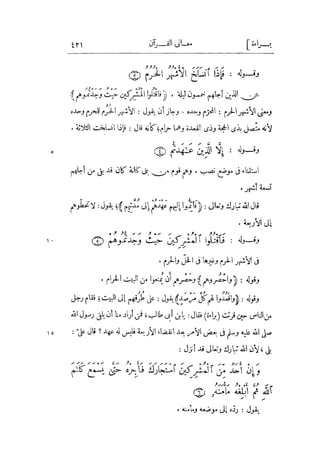 بــراءة ] معـانى القــرآن ٤٢١
وقــوله : فَإِذَا ٱنسَلَخَ ٱلْأَشْهُرُ ٱلْحُرُمُ
عن الذين أجلهم خمسون ليلة . ﴿ فَاقْتُلُوا الْمُشْرِكِينَ حَيْثُ وَجَدْتُمُوهُمْ ﴾
ومعنى الأشهر الحرم : المحرّم وحده . وجاز أن يقول : الأشهر الحُرم للمحرم وحده
لأنه متّصل بذى الحجة وذى القعدة وهما حرام ؛ كأنه قال : فإذا انسلخت الثلاثة .
وقــوله : إِلَّا ٱلَّذِينَ عَٰهَدتُّم ٥
استثناء فى موضع نصب . وهم قوم من بنى كنانة كان قد بقى من أجلهم
تسعة أشهر .
قال الله تبارك وتعالى : ﴿ فَأَتِمُّوا إِلَيْهِمْ عَهْدَهُمْ إِلَى مُدَّتِهِمْ ﴾ ؛ يقول : لا تحطّوهم
إلى الأربعة .
وقــوله : فَٱقْتُلُوا۟ ٱلْمُشْرِكِينَ حَيْثُ وَجَدتُّمُوهُمْ ١٠
فى الأشهر الحرم وغيرها فى الحلّ والحرم .
وقوله : ﴿ وَاحْصُرُوهُمْ ﴾ وحصرهم أن يُمنعوا من البيت الحرام .
وقوله : ﴿ وَاقْعُدُوا لَهُمْ كُلَّ مَرْصَدٍ ﴾ يقول : على طُرُقهم إلى البيت ؛ فقام رجل
من الناس حين قرئت ( براءة ) فقال : يابن أبى طالب ، فمن أراد منا أن يلقى رسول الله
صلى الله عليه وسلم فى بعض الأمر بعد انقضاء الأربعة فليس له عهد ؟ قال علىّ : ١٥
بلى ، لأن الله تبارك وتعالى قد أنزل :
وَإِنْ أَحَدٌ مِّنَ ٱلْمُشْرِكِينَ ٱسْتَجَارَكَ فَأَجِرْهُ حَتَّىٰ يَسْمَعَ كَلَٰمَ
ٱللَّهِ ثُمَّ أَبْلِغْهُ مَأْمَنَهُۥ
يقول : ردّه إلى موضعه ومأمنه .